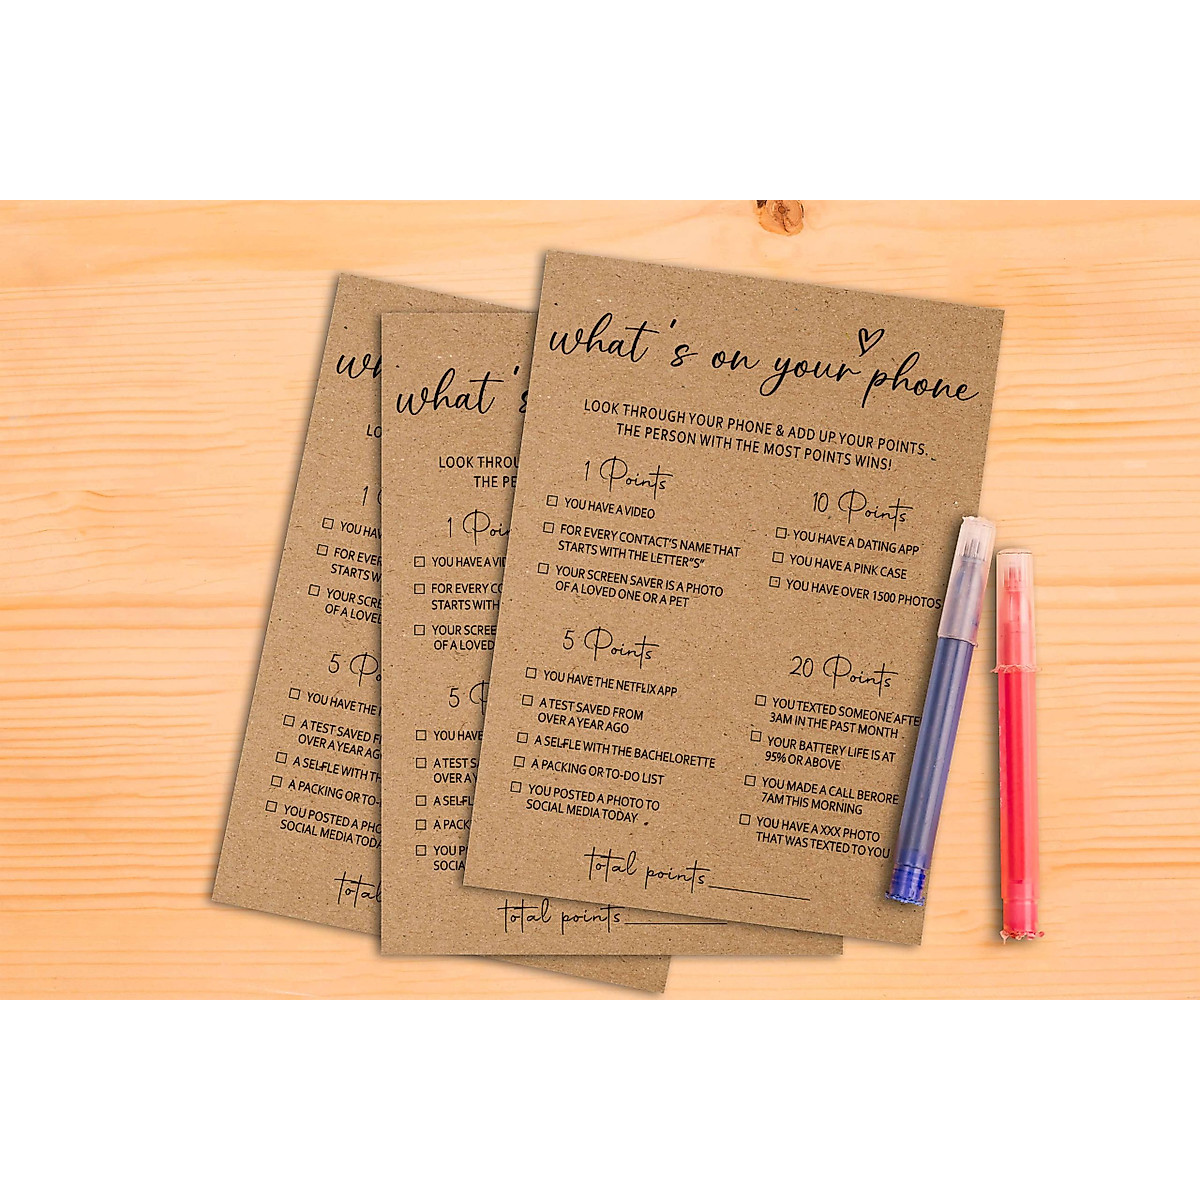 what's on your phone
LOOK THROUGH YOUR PHONE & ADD UP YOUR POINTS.
THE PERSON WITH THE MOST POINTS WINS!
1 Points
YOU HAVE A VIDEO
FOR EVERY CONTACT'S NAME THAT
STARTS WITH THE LETTER"S"
YOUR SCREEN SAVER IS A PHOTO
OF A LOVED ONE OR A PET
5 Points
YOU HAVE THE NETFLIX APP
A TEST SAVED FROM
OVER A YEAR AGO
A SELFLE WITH THE BACHELORETTE
A PACKING OR TO-DO LIST
YOU POSTED A PHOTO TO
SOCIAL MEDIA TODAY
10 Points
YOU HAVE A DATING APP
YOU HAVE A PINK CASE
YOU HAVE OVER 1500 PHOTOS
20 Points
YOU TEXTED SOMEONE AFTE
3AM IN THE PAST MONTH
YOUR BATTERY LIFE IS AT
95% OR ABOVE
YOU MADE A CALL BERORE
7AM THIS MORNING
YOU HAVE A XXX PHOTO
THAT WAS TEXTED TO YOU
total points
what's
LOOK THROU
THE PE
1 Poin
YOU HAVE A VI
FOR EVERY CO
STARTS WITH
YOUR SCREE
OF A LOVED
5 P
YOU HAVE
A TEST S
OVER A Y
A SELFL
A PACK
YOU P
SOCIA
total points
wh
LO
1
YOU HA
FOR EVER
STARTS W
YOUR SCRE
OF A LOVE
5 Po
YOU HAVE THE
A TEST SAVED F
OVER A YEAR AG
A SELFLE WITH TH
A PACKING OR TO-
YOU POSTED A PHO
SOCIAL MEDIA TODA
total